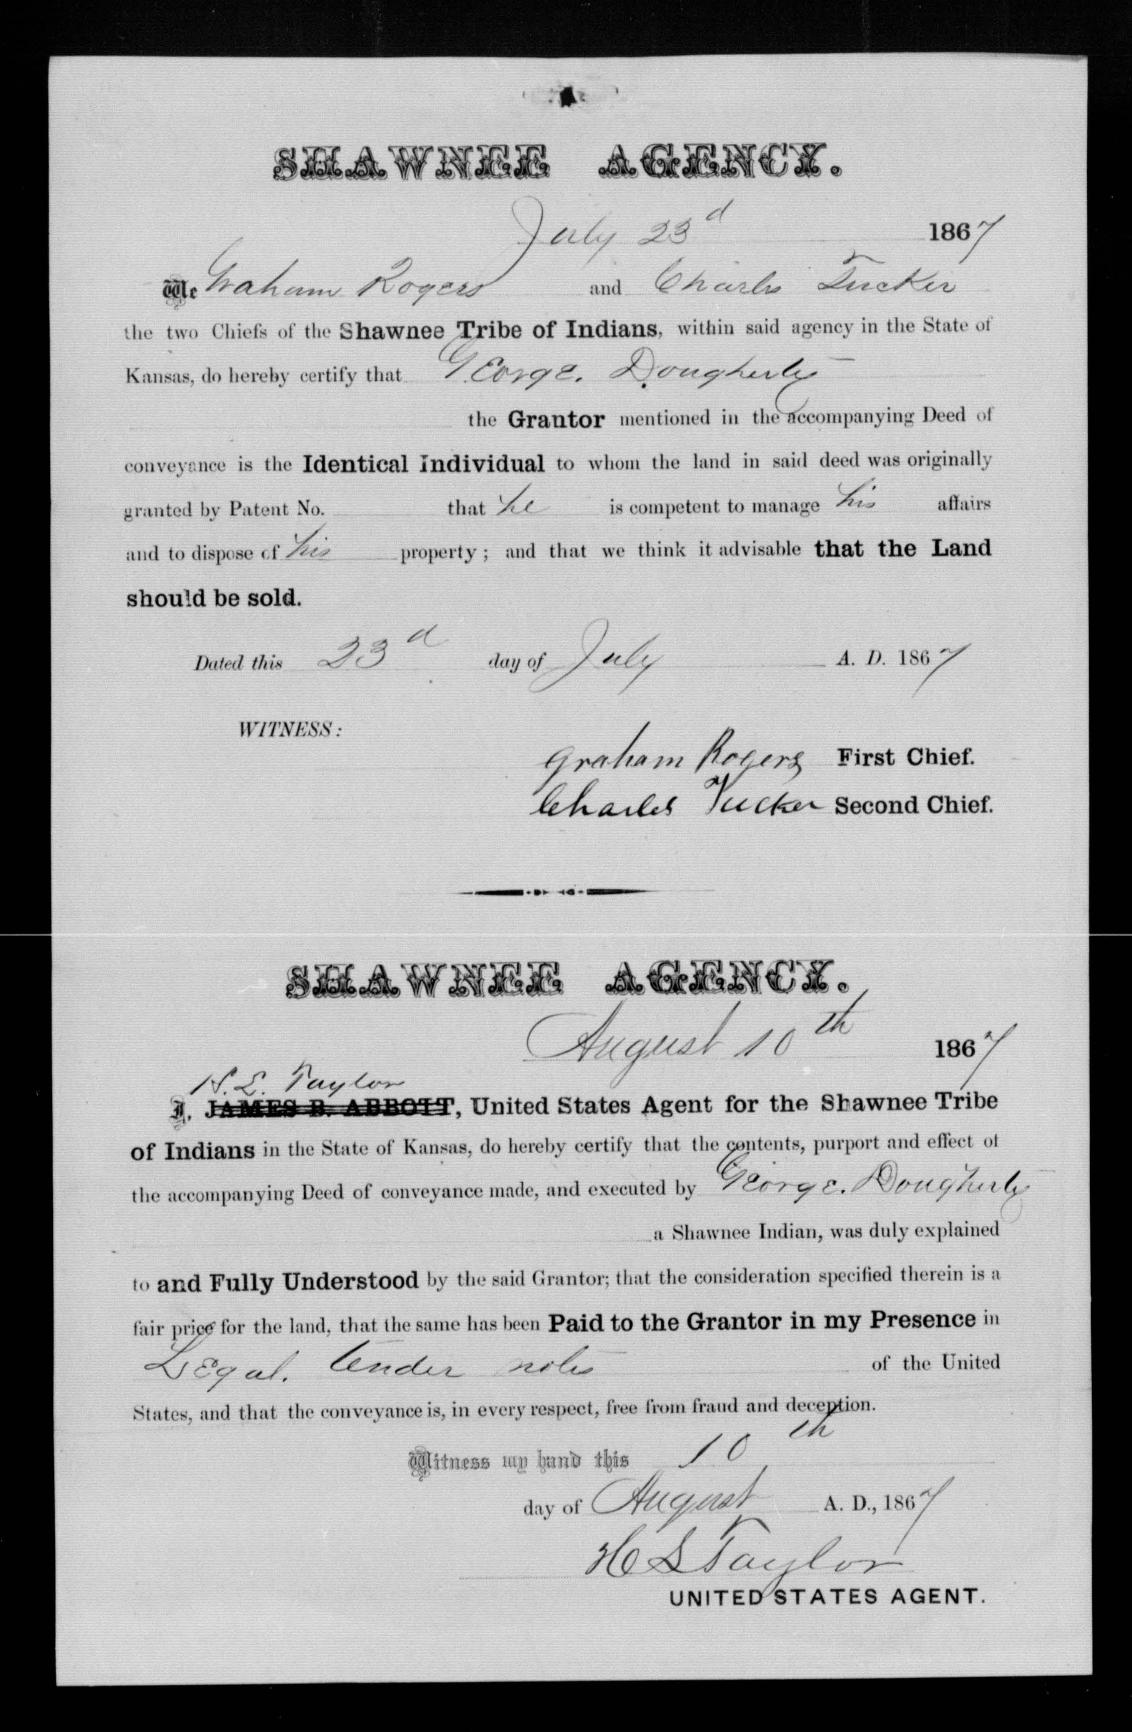 SHAWNEE AGENCY.
July 23d 1867
We Graham Rogers and Charles Tucker
the two Chiefs of the Shawnee Tribe of Indians, within said agency in the State of
Kansas, do hereby certify that George. Dougherty
the Grantor mentioned in the accompanying Deed of
conveyance is the Identical Individual to whom the land in said deed was originally
granted by Patent No. that he is competent to manage his affairs
and to dispose of his property; and that we think it advisable that the Land
should be sold.
Dated this 23d day of July A. D. 1867
WITNESS:
Graham Rogers First Chief.
Charles Tucker Second Chief.
SHAWNEE AGENCY.
August 10th 1867
H. L. Taylor
I, JAMES B. ABBOTT, United States Agent for the Shawnee Tribe
of Indians in the State of Kansas, do hereby certify that the contents, purport and effect of
the accompanying Deed of conveyance made, and executed by George. Dougherty
a Shawnee Indian, was duly explained
to and Fully Understood by the said Grantor; that the consideration specified therein is a
fair price for the land, that the same has been Paid to the Grantor in my Presence in
Legal. tender notes of the United
States, and that the conveyance is, in every respect, free from fraud and deception.
Witness my hand this 10th
day of August A. D., 1867
H L Taylor
UNITED STATES AGENT.